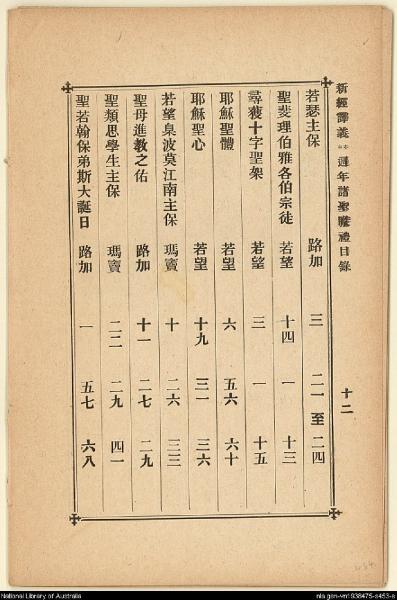 新經譯義 週年諸聖瞻禮目錄 十二
若瑟主保 路加 三 二一至二四
聖斐理伯雅各伯宗徒 若望 十四 一 十三
尋獲十字聖架 若望 三 一 十五
耶穌聖體 若望 六 五六 六十
耶穌聖心 若望 十九 三一 三六
若望臬波莫江南主保 瑪竇 十 二六 三三
聖母進教之佑 路加 十一 二七 二九
聖類思學生主保 瑪竇 二二 二九 四一
聖若翰保弟斯大誕日 路加 一 五七 六八
National Library of Australia
nla.gen-vn1938475-s453-e